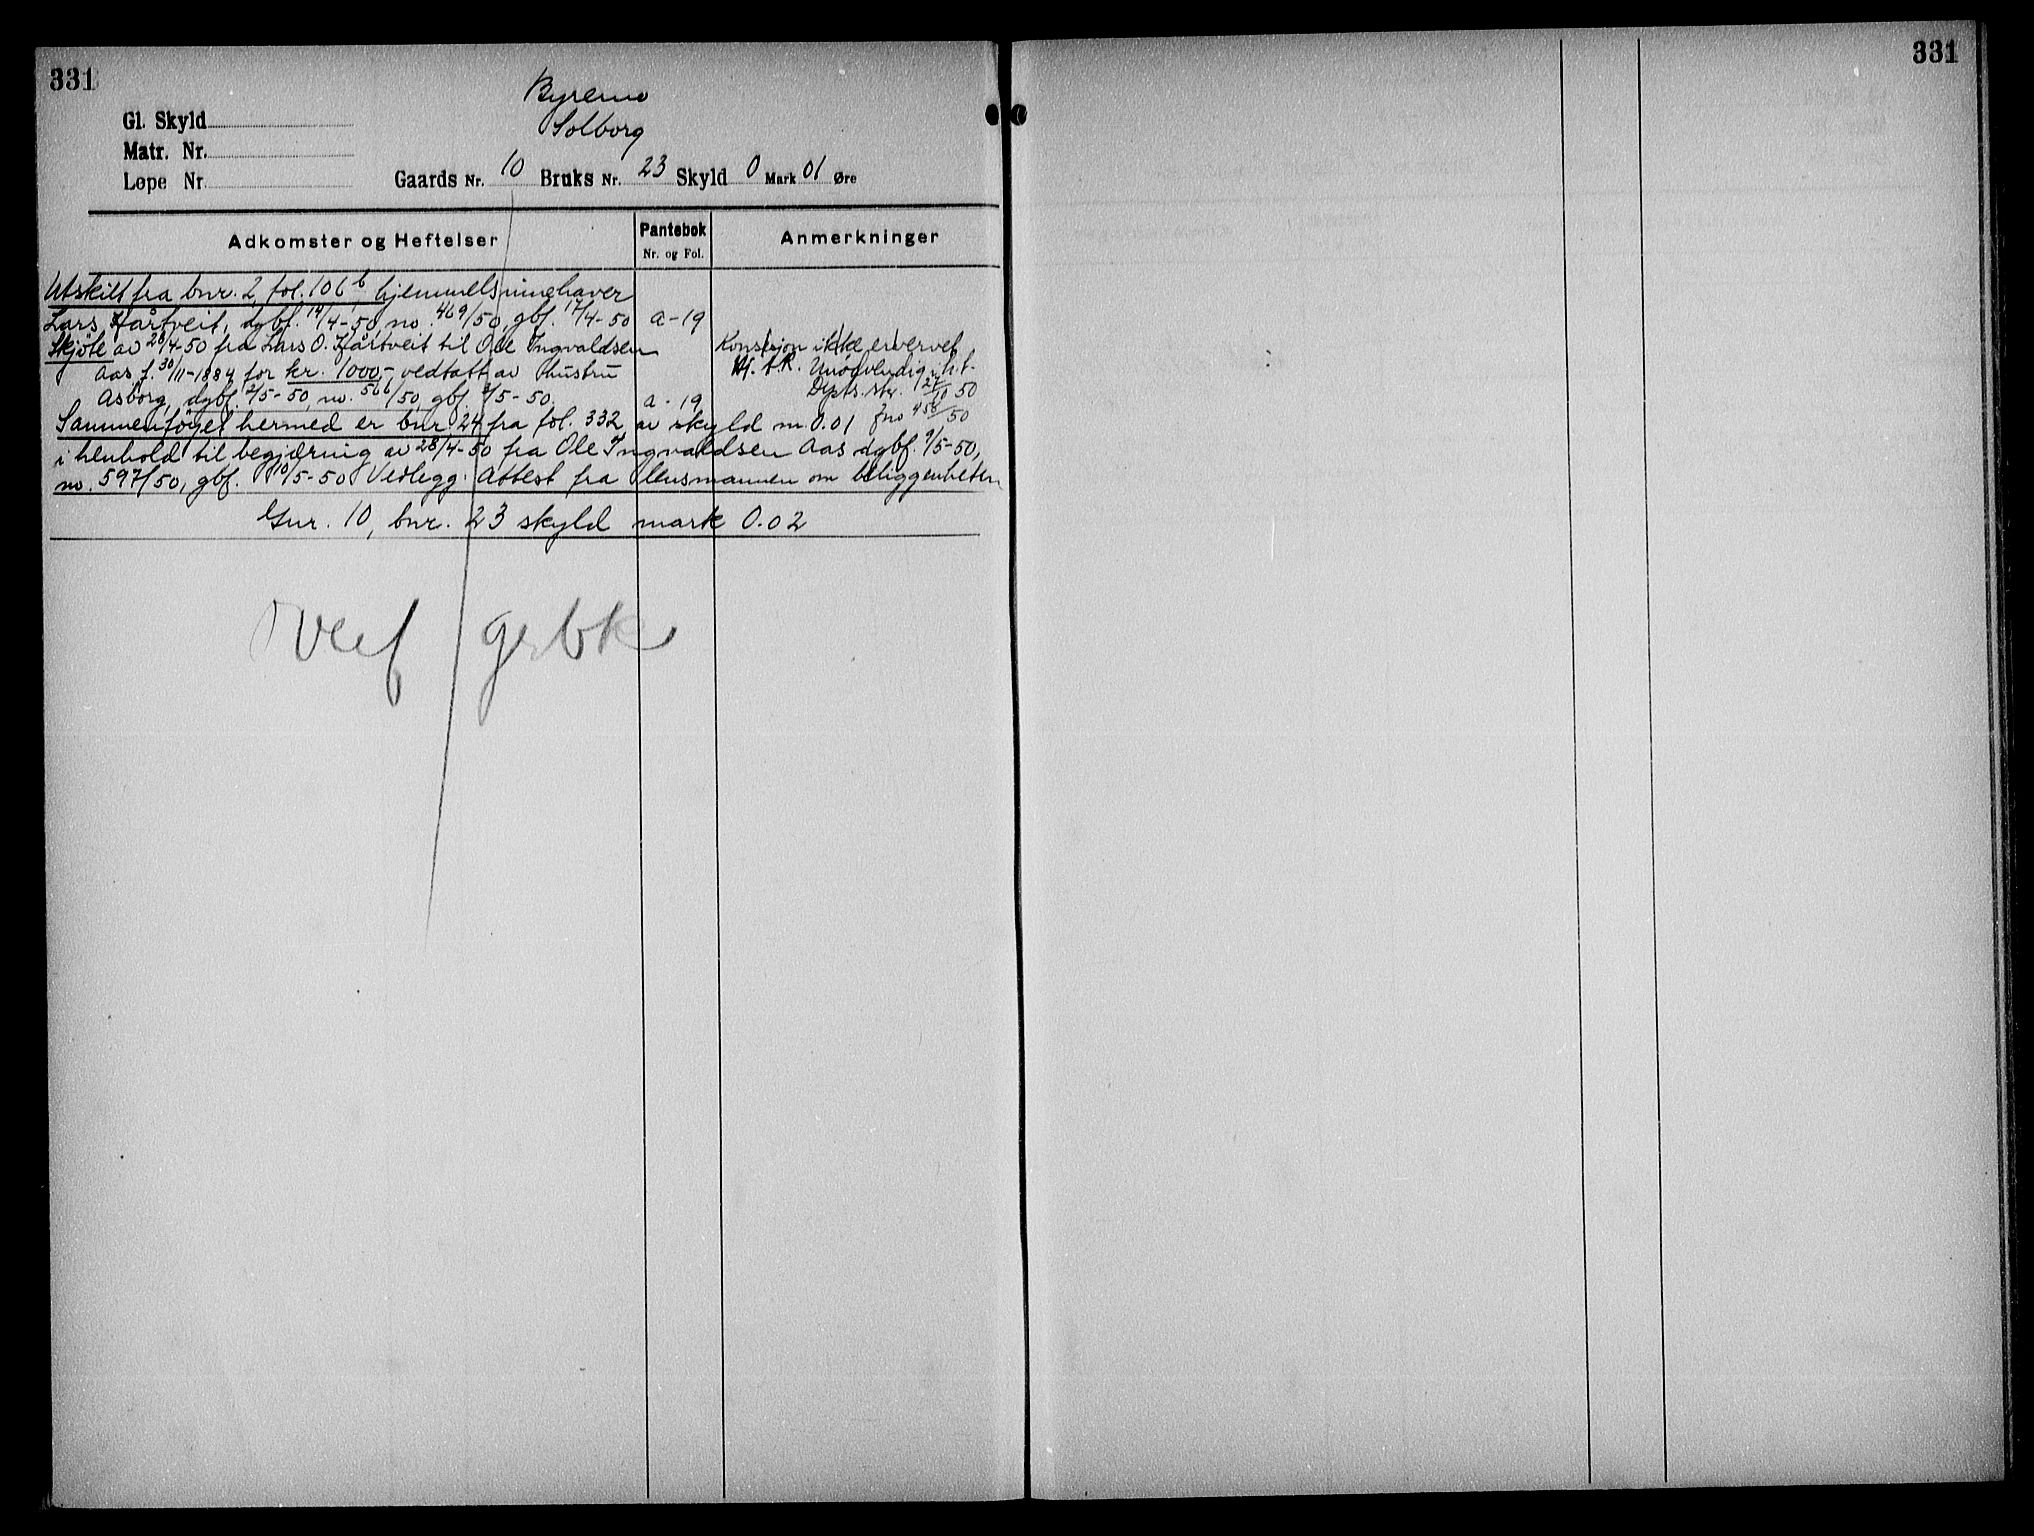 331
331
Byremo
Solborg
Gl. Skyld
Matr. Nr.
Løpe Nr
Gaards Nr. 10 Bruks Nr. 23 Skyld 0 Mark 01 Øre
Adkomster og Heftelser
Pantebok
Nr. og Fol.
Anmerkninger
Utskilt fra bnr. 2, fol. 106b hjemmelsinnehaver
Lars Hårtveit, dgbf. 14/4-50, no. 469/50, gbf. 17/4-50 a-19
Skjöte av 28/4-50 fra Lars O. Hårtveit til Ole Ingvaldsen
Aas f. 30/11-1884 for kr. 1000,- vedtatt av hustru
Asborg, dgbf. 2/5-50, no. 566/50, gbf. 3/5-50. a-19
Konsesjon ikke ervervet
Unödvendig i h.t.
Dept.s skr. 27/10 50
Jno 458/50
Sammenföyet hermed er bnr. 24 fra fol. 332 av skyld m. 0.01
i henhold til begjæring av 28/4-50 fra Ole Ingvaldsen Aas dgbf. 9/5-50,
no. 597/50, gbf. 10/5-50 Vedlegg: Attest fra lensmannen om beliggenheten
Gnr. 10, bnr. 23 skyld mark 0.02
Overf grbk